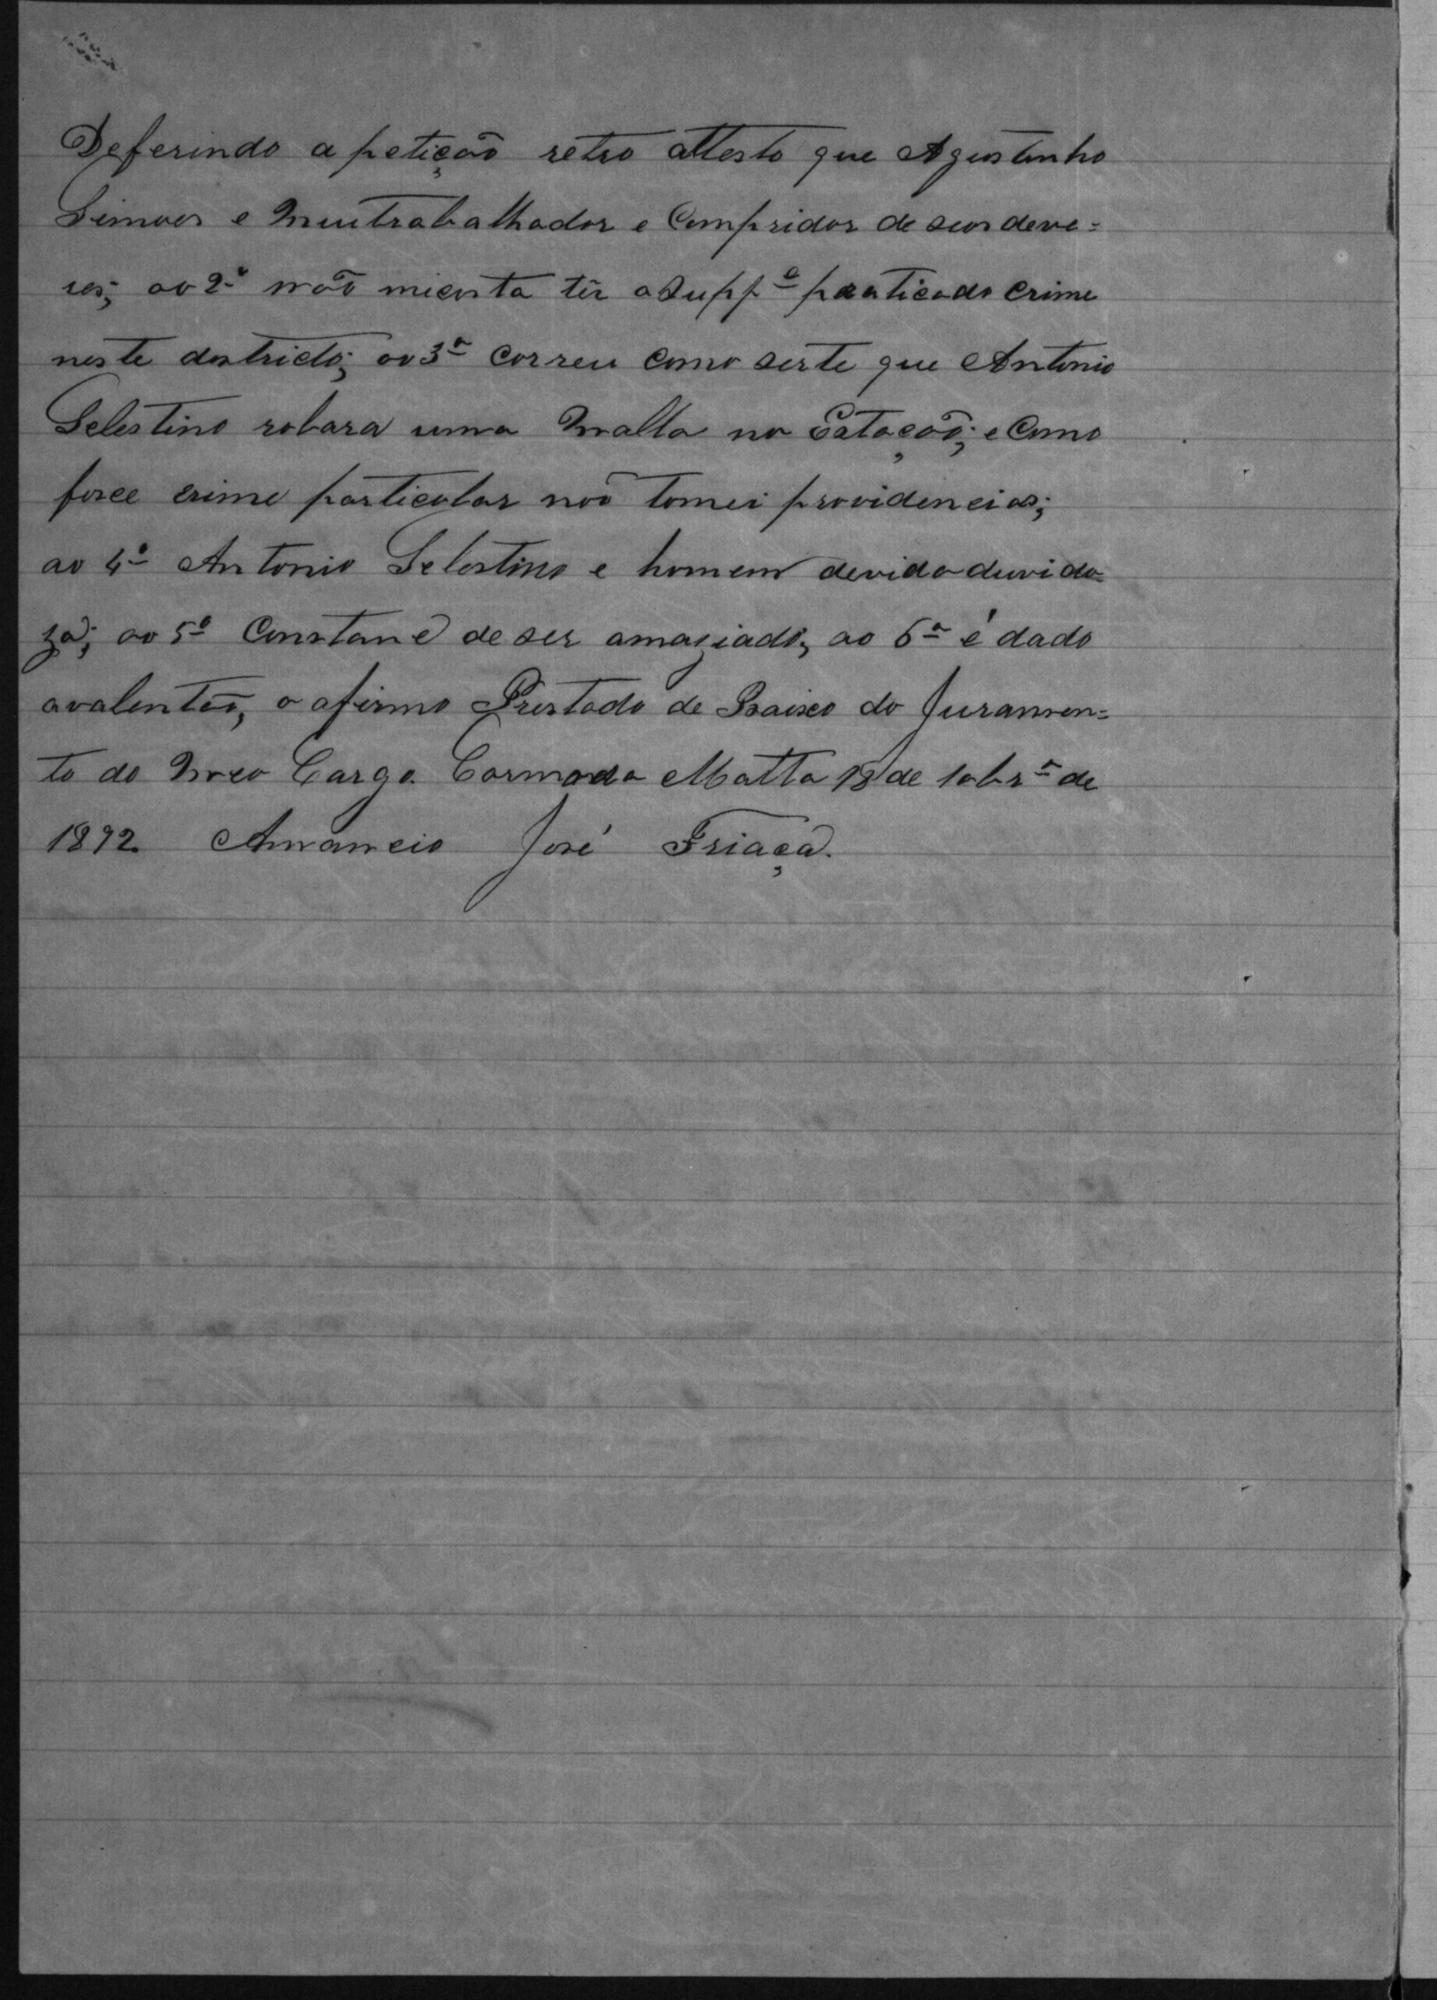 Deferindo a petição retro attesto que Agustinho
Simoes e muitrabalhador e Compridor de seos deve=
res; ao 2º não miconsta têr o Supp.e praticado crime
neste destricto; ao 3º correu como serte que Antonio
Selestino robara uma malla na Estação; e Como
foce crime particolar não tomei providencias;
ao 4º Antonio Selestino e homem devida duvido=
za; ao 5º Constame de ser amaziado; ao 6º é dado
avalentão, o afirmo Prestado de Baixo do Juramen=
to do meo Cargo. Carmo da Matta 18 de 10brº de
1892. Amancio José Friaça.